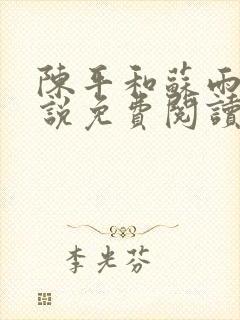 陳平和蘇雨
說免費閱讀
李光芬